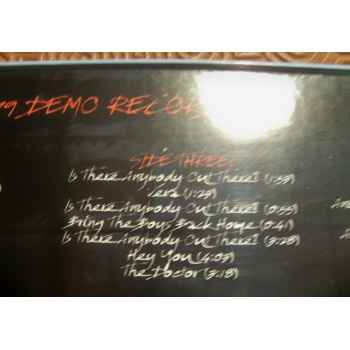 79 DEMO RECOR
SIDE THREE:
Is There Anybody Out There? (1:37)
Vera (1:23)
Is There Anybody Out There? (0:55)
Bring The Boys Back Home (0:41)
Is There Anybody Out There? (3:28)
Hey You (4:03)
The Doctor (3:18)